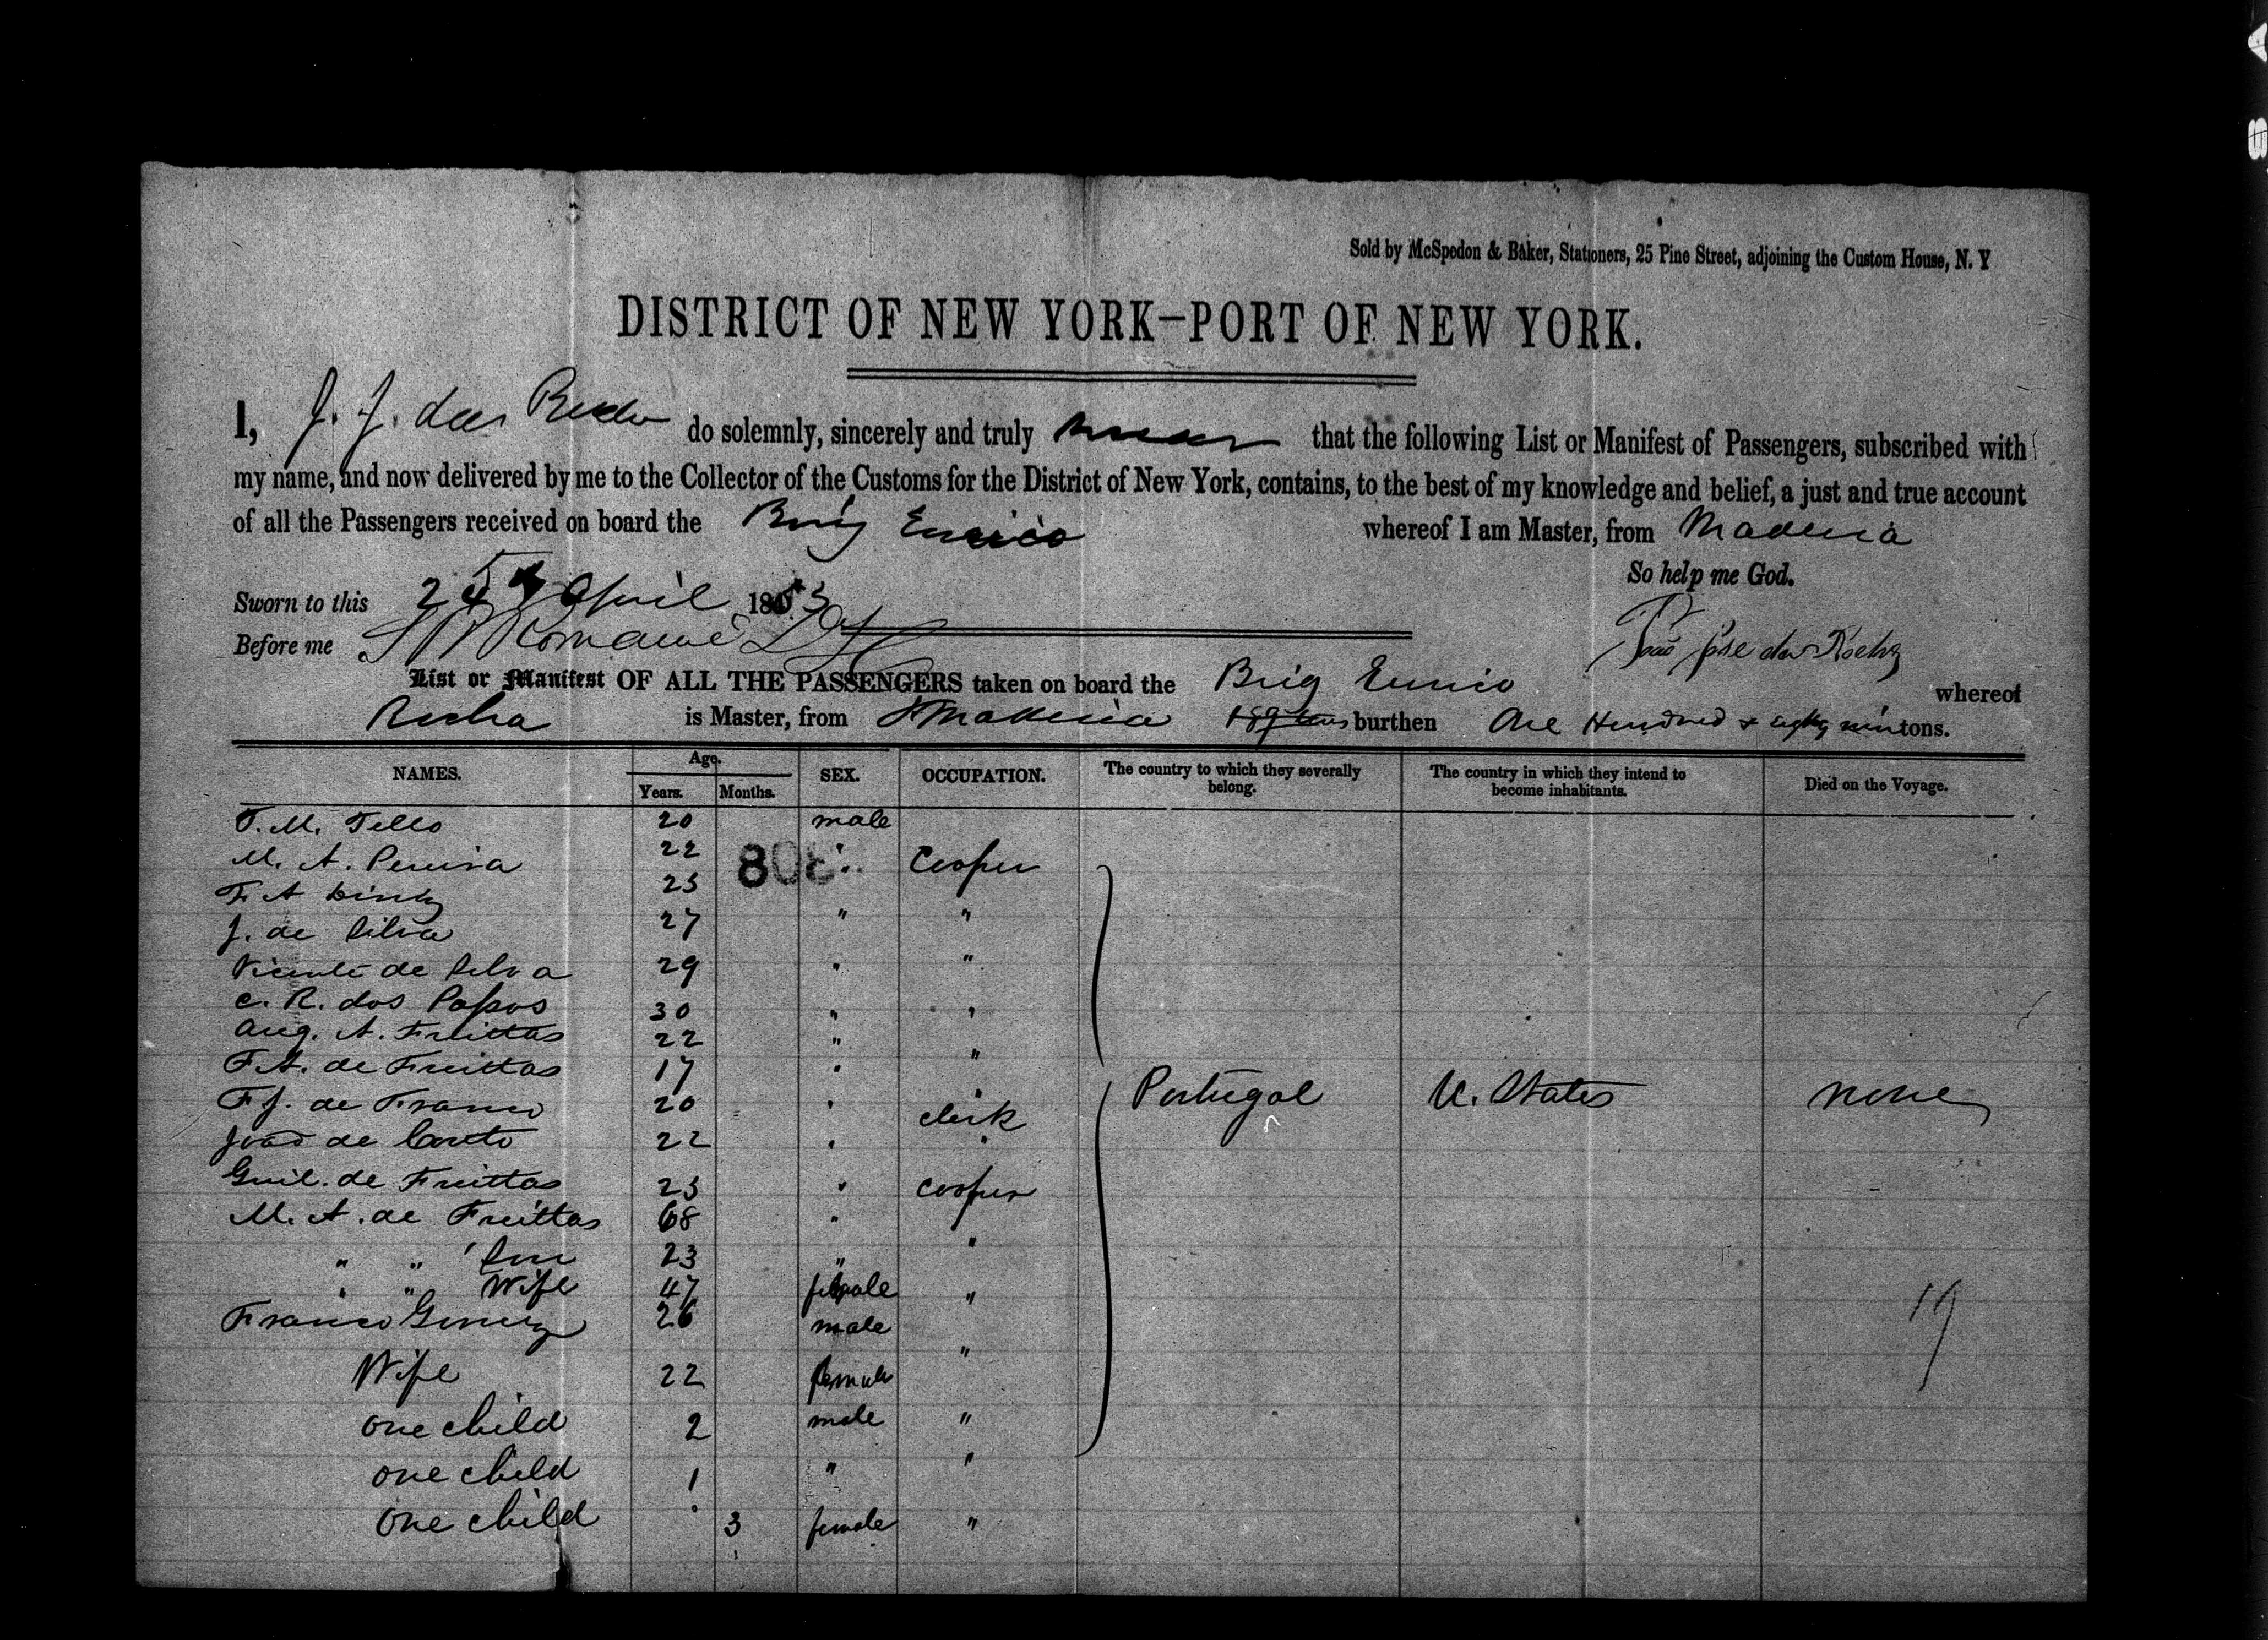 Sold by McSpedon & Baker, Stationers, 25 Pine Street, adjoining the Custom House, N. Y
DISTRICT OF NEW YORK—PORT OF NEW YORK.
I, J. J. do solemnly, sincerely and truly that the following List or Manifest of Passengers, subscribed with
my name, and now delivered by me to the Collector of the Customs for the District of New York, contains, to the best of my knowledge and belief, a just and true account
of all the Passengers received on board the Brig Eurico whereof I am Master, from Madeira
So help me God.
Sworn to this 25 April 1853
Before me
List or Manifest OF ALL THE PASSENGERS taken on board the Brig Eurico whereof
Rocha is Master, from Madeira 189 tons burthen One Hundred & eighty nine tons.
NAMES. Age. Years. Months. SEX. OCCUPATION. The country to which they severally belong. The country in which they intend to become inhabitants. Died on the Voyage.
T. M. Tello 20 male
M. A. Pereira 22 808 " Cooper
F. A 25
J. de Silva 27 " "
Vicente de Silva 29 " "
C. R. dos Passos 30 " "
Aug. A. Freittas 22 " "
F. A. de Freittas 17 "
F. J. de Franco 20 " clerk Portugal U. States none
João de Couto 22 " "
Guil. de Freittas 23 " cooper
M. A. de Freittas 68 "
" " Son 23 " "
" " Wife 47 female "
Franco Gomez 26 male
19
Wife 22 female "
one child 2 male "
one child 1 " "
one child 3 female "